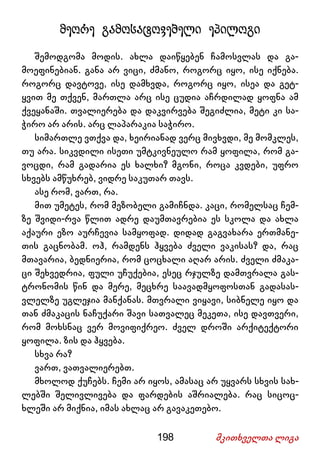 მეორე გამოსატოვებელი ეპილოგი
შემოდგომა მოდის. ახლა დაიწყებენ ჩამოსვლას და გა-
მოეფინებიან. განა არ ვიცი, ძმანო, როგორც იყო, ისე იქნება.
როგორც დავტოვე, ისე დამხვდა, როგორც იყო, ისეა და გეტ-
ყვით მე თქვენ, მართლა არც ისე ცუდია აჩრდილად ყოფნა ამ
ქვეყანაში. თვალიერება და დაკვირვება შეგიძლია, მეტი კი სა-
ჭირო არ არის. არც ლაპარაკია საჭირო.
სიმართლე ვთქვა და, ხეირიანად ვერც მივხვდი, მე მომკლეს,
თუ არა. სიკვდილი ისეთი უმტკივნეულო რამ ყოფილა, რომ გა-
ვოცდი, რამ გადარია ეს ხალხი? მგონი, როცა კვდები, უფრო
სხვებს ამწუხრებ, ვიდრე საკუთარ თავს.
ასე რომ, ვართ, რა.
მით უმეტეს, რომ მეზობელი გამიჩნდა. კაცი, რომელსაც ჩემ-
ზე შვიდი-რვა წლით ადრე დაუმთავრებია ეს სკოლა და ახლა
აქაური ეზო აურჩევია სამყოფად. დიდად გაგვახარა ერთმანე-
თის გაცნობამ. ოჰ, რამდენს ჰყვება ძველი ვაკისას? და, რაც
მთავარია, ბედნიერია, რომ ცოცხალი აღარ არის. ძველი ძმაკა-
ცი შეხვედრია, ფული უჩუქებია, ესეც რჯულზე დამთვრალა გას-
ტრონომის წინ და მერე, მეცხრე საავადმყოფოსთან გადასას-
ვლელზე უგლეჯია მანქანას. მთვრალი ვიყავი, სიბნელე იყო და
თან ძმაკაცის ნაჩუქარი შავი სათვალეც მეკეთა, ისე დავთვერი,
რომ მოხსნაც ვერ მოვიფიქრეო. ძველ დროში არქიტექტორი
ყოფილა. ზის და ჰყვება.
სხვა რა?
ვართ, ვათვალიერებთ.
მხოლოდ ქუჩებს. ჩემი არ იყოს, ამასაც არ უყვარს სხვის სახ-
ლებში შელივლივება და ფარდების აშრიალება. რაც სიცოც-
ხლეში არ მიქნია, იმას ახლაც არ გავაკეთებო.
198 მკითხველთა ლიგა